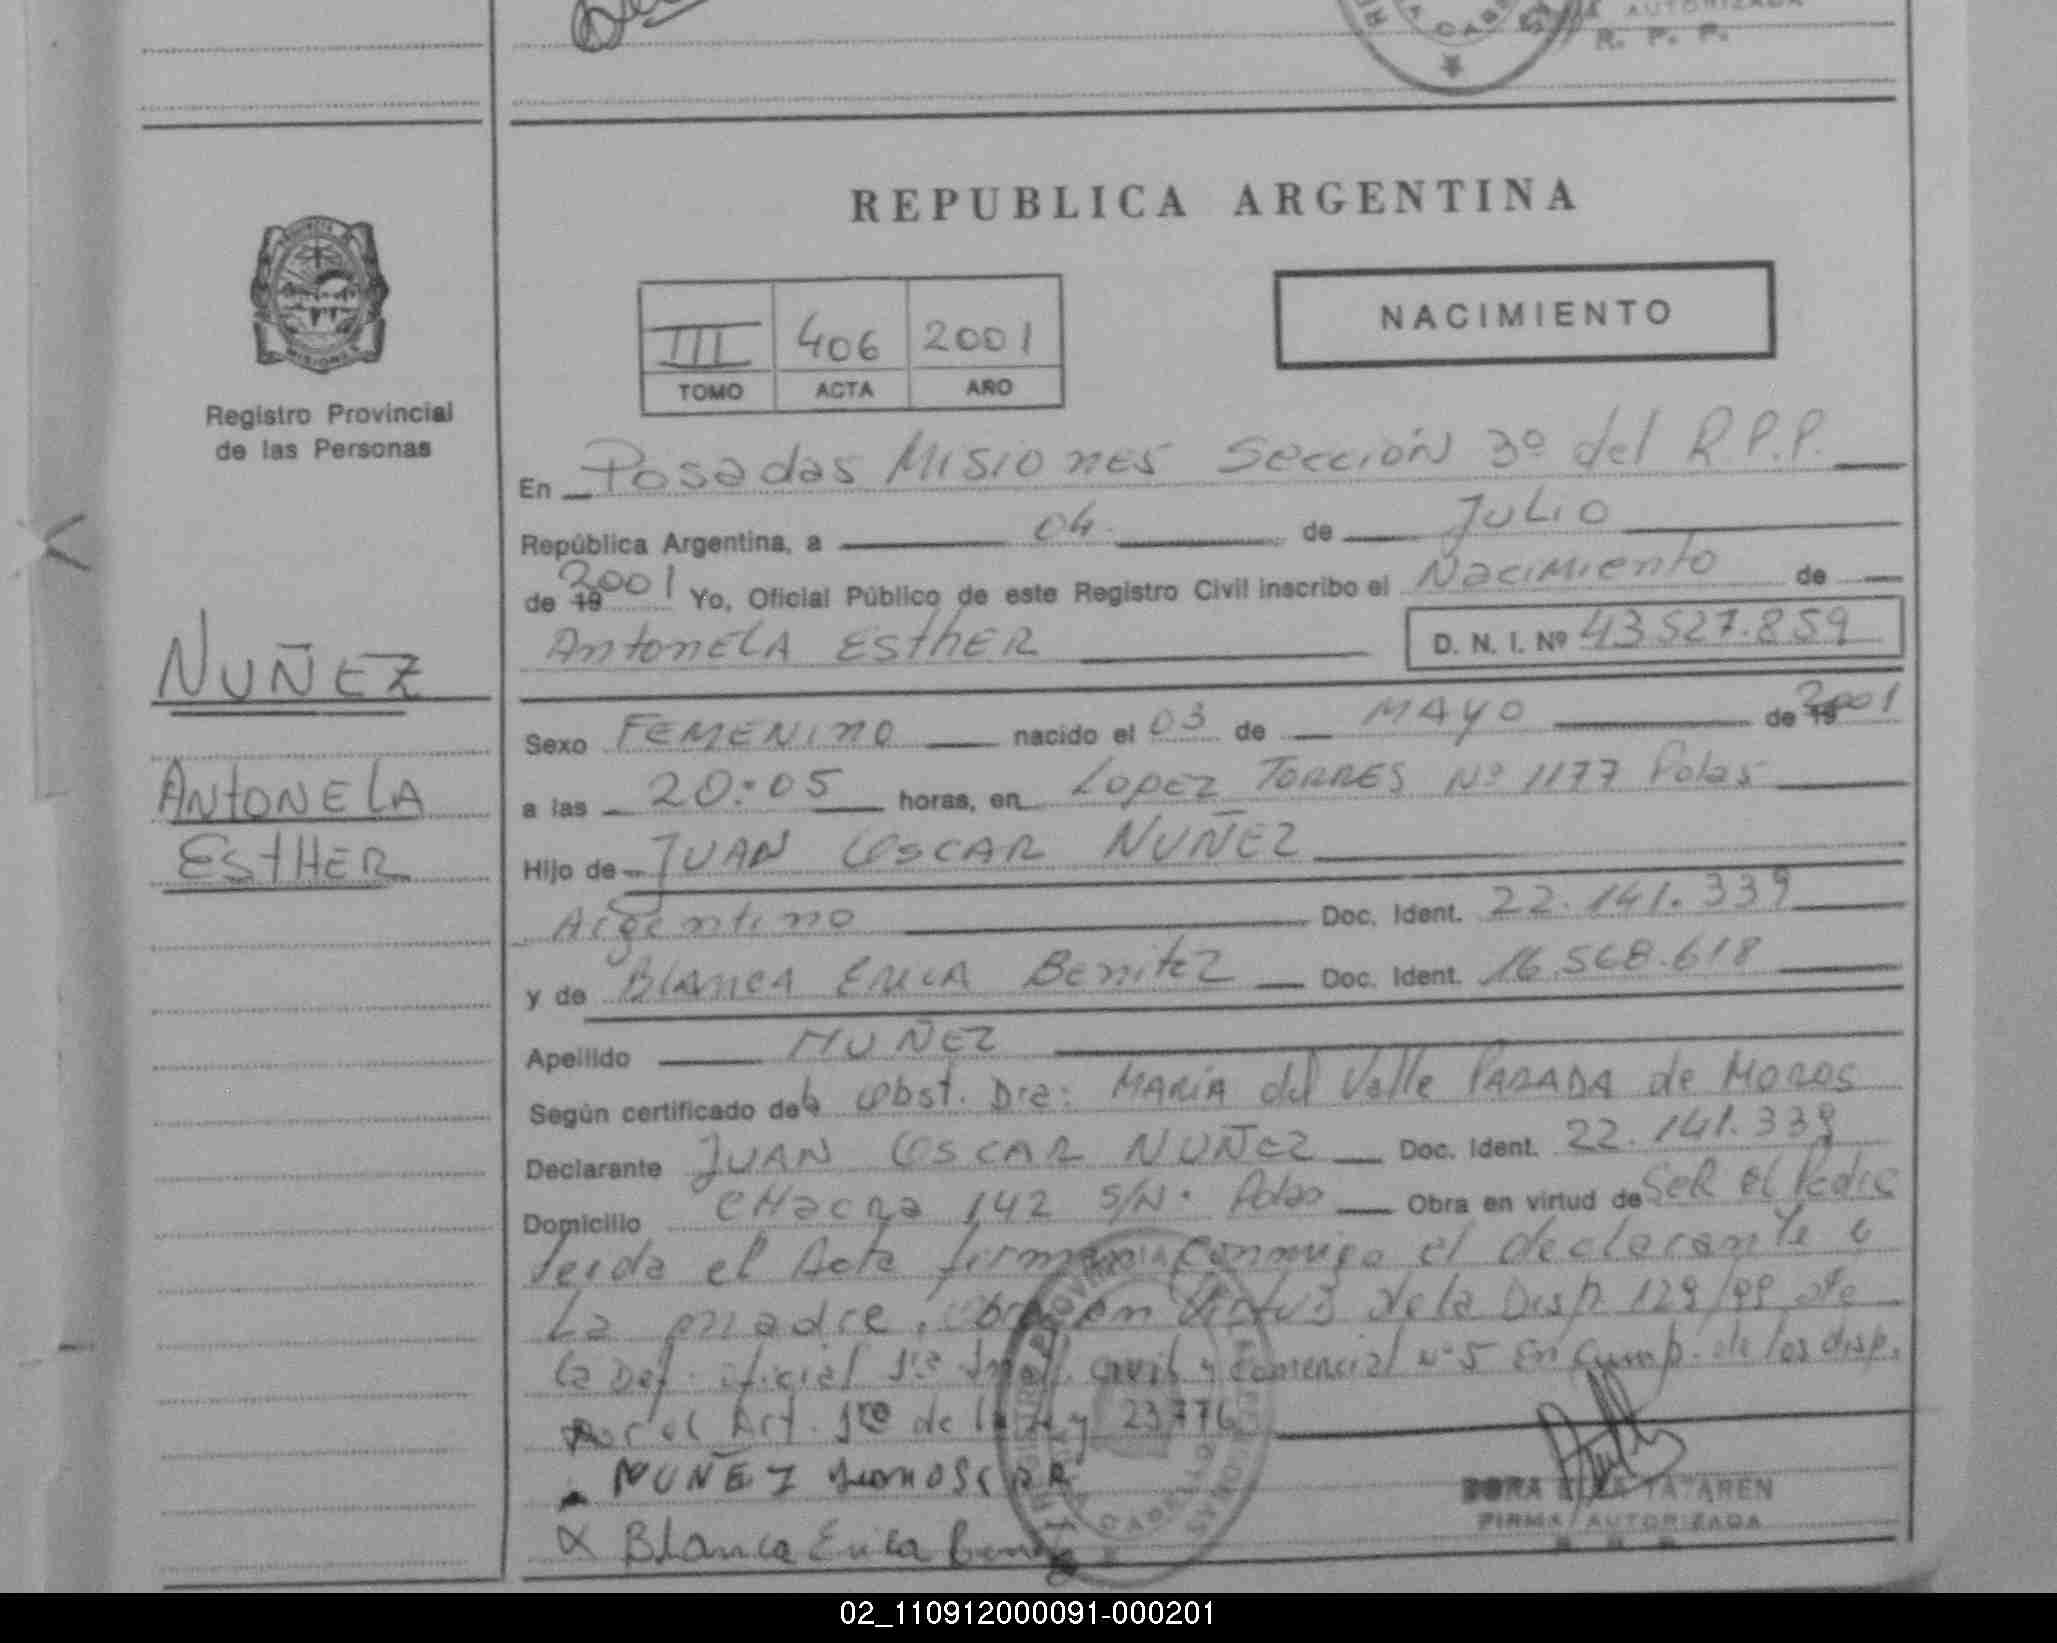 AUTORIZADA
R. P. P.
REPUBLICA ARGENTINA
NACIMIENTO
III 406 2001
TOMO ACTA AÑO
MISIONES
Registro Provincial
de las Personas
En Posadas Misiones Sección 3º del R.P.P.
República Argentina, a 04 de Julio
de 19 2001 Yo, Oficial Público de este Registro Civil inscribo el Nacimiento de
Antonela Esther D. N. I. Nº 43 527.859
NUÑEZ
ANTONELA
ESTHER
Sexo FEMENINO nacido el 03 de MAYO de 19 2001
a las 20:05 horas, en Lopez TORRES Nº 1177 Pdas
Hijo de JUAN OSCAR NUÑEZ
Argentino Doc. Ident. 22.141.339
y de BLANCA ERICA BENITEZ Doc. Ident. 16.568.618
Apellido NUÑEZ
Según certificado de la Obst. Dra: MARIA del Valle PARADA de MOROS
Declarante JUAN OSCAR NUÑEZ Doc. Ident. 22.141.339
Domicilio CHacra 142 S/N. Pdas Obra en virtud de SER el Padre
Leida el Acta firman conmigo el declarante y
La madre, obra en virtud de la Disp. 129/99 de
la Def. oficial 1ra Inst. civil y comercial nº 5 En Cump. de las disp.
por el Art. 1ro de la Ley 23776
NUÑEZ Juan OSCAR
X Blanca Erica Benitez
TATAREN
FIRMA AUTORIZADA
02_110912000091-000201